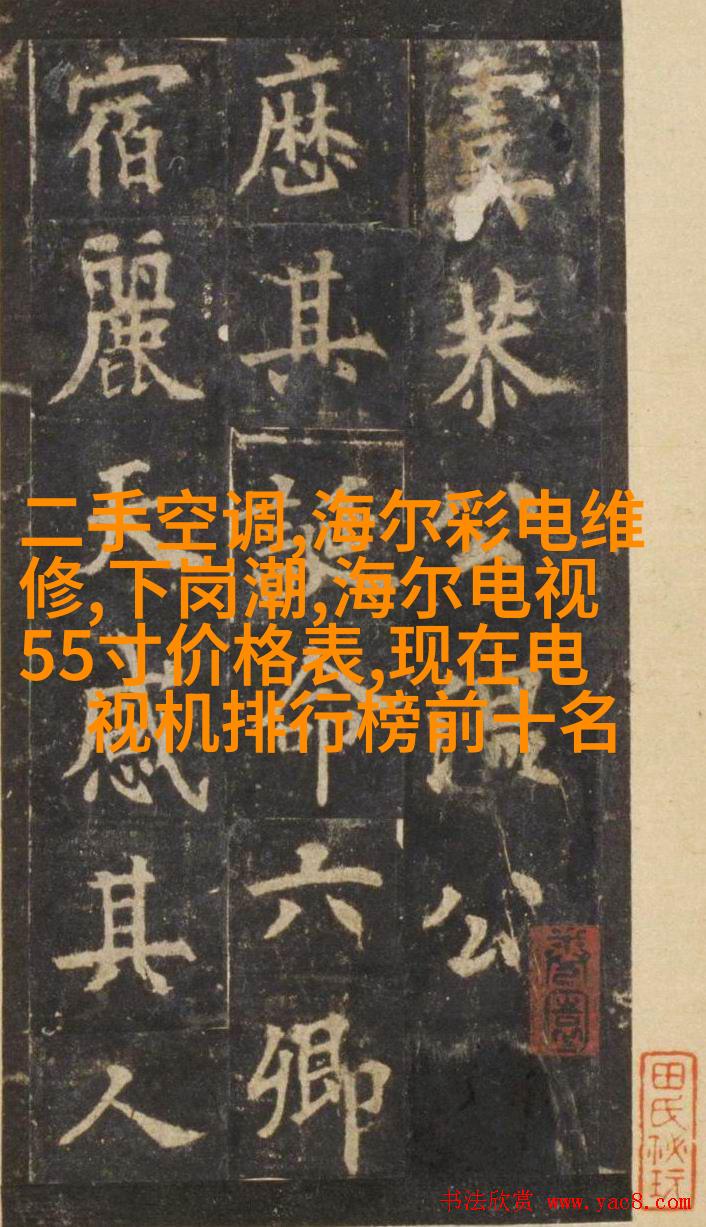 恭公温公
厯其命六卿
宿麗天感其人
二手空调,海尔彩电维
修,下岗潮,海尔电视
55寸价格表,现在电
视机排行榜前十名
田氏秘玩
书法欣赏 www.yac8.com